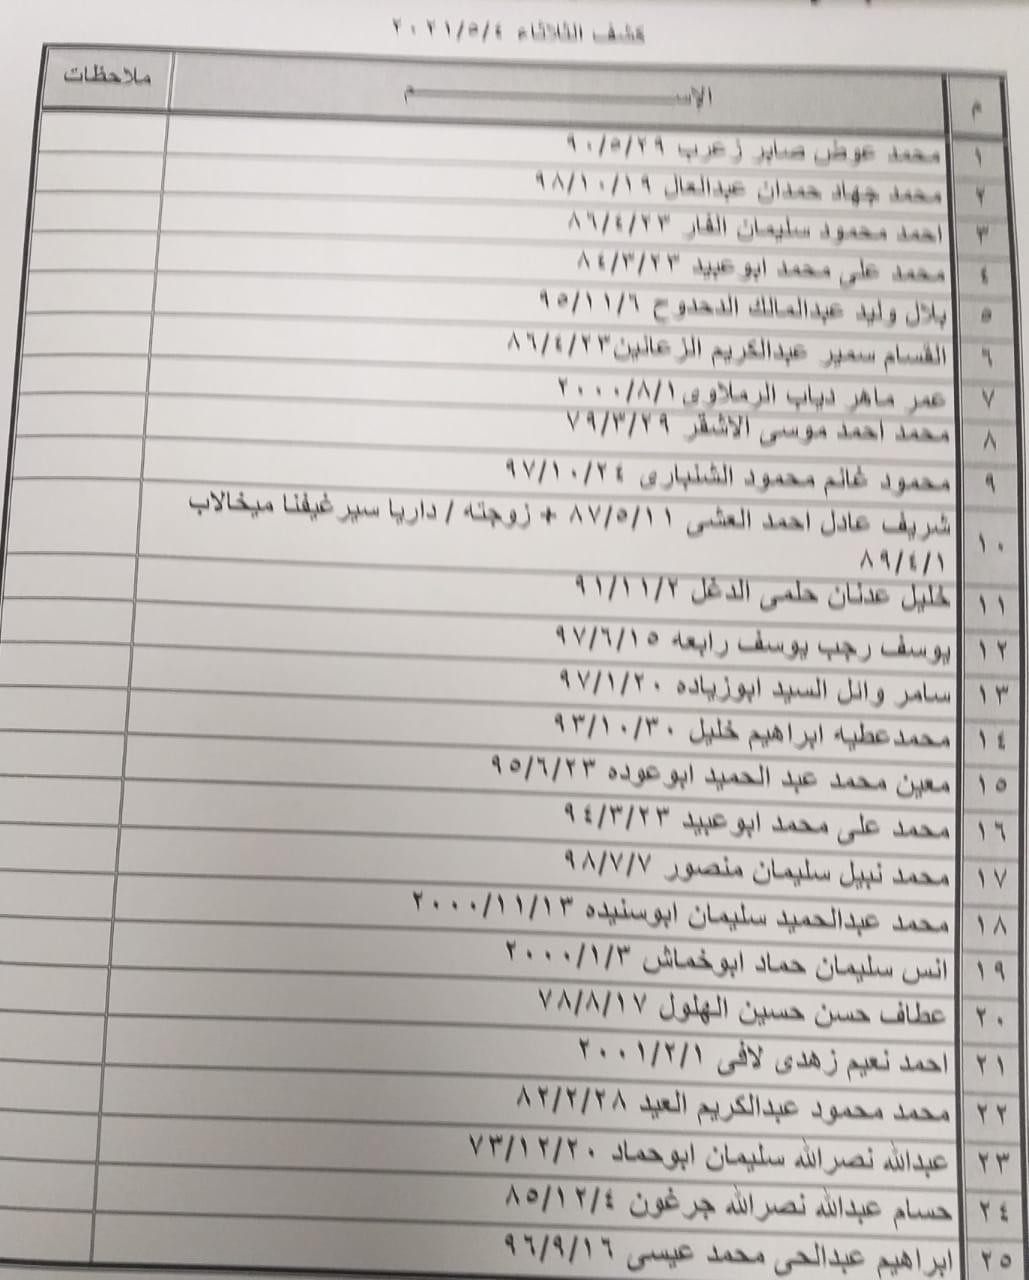 كشف الثلاثاء ٢٠٢١/٥/٤
م الاســــــــــم ملاحظات
١ محمد عوض صابر زعرب ٩٠/٥/٢٩
٢ محمد جهاد حمدان عبدالعال ٩٨/١٠/١٩
٣ احمد محمود سليمان الفار ٨٦/٤/٢٣
٤ محمد على محمد ابوعبيد ٨٤/٣/٢٣
٥ بلال وليد عبدالمالك الدحدوح ٩٥/١١/٦
٦ القسام سمير عبدالكريم الزعانين ٨٦/٤/٢٣
٧ عمر ماهر دياب الرملاوى ٢٠٠٠/٨/١
٨ محمد احمد موسى الاشقر ٧٩/٣/٢٩
٩ محمود غانم محمود الشنبارى ٩٧/١٠/٢٤
١٠ شريف عادل احمد العشى ٨٧/٥/١١ + زوجته / داريا سيرغيفنا ميخالاب
٨٩/٤/١
١١ خليل عدنان حلمى الدغل ٩١/١١/٢
١٢ يوسف رجب يوسف رابعه ٩٧/٦/١٥
١٣ سامر وائل السيد ابوزياده ٩٧/١/٢٠
١٤ محمدعطيه ابراهيم خليل ٩٣/١٠/٣٠
١٥ معين محمد عبد الحميد ابوعوده ٩٥/٦/٢٣
١٦ محمد على محمد ابوعبيد ٩٤/٣/٢٣
١٧ محمد نبيل سليمان منصور ٩٨/٧/٧
١٨ محمد عبدالحميد سليمان ابوسنيده ٢٠٠٠/١١/١٣
١٩ انس سليمان حماد ابوخماش ٢٠٠٠/١/٣
٢٠ عطاف حسن حسين الهلول ٧٨/٨/١٧
٢١ احمد نعيم زهدى لافى ٢٠٠١/٢/١
٢٢ محمد محمود عبدالكريم العيد ٨٢/٢/٢٨
٢٣ عبدالله نصرالله سليمان ابوحماد ٧٣/١٢/٢٠
٢٤ حسام عبدالله نصرالله جرغون ٨٥/١٢/٤
٢٥ ابراهيم عبدالحى محمد عيسى ٩٦/٩/١٦